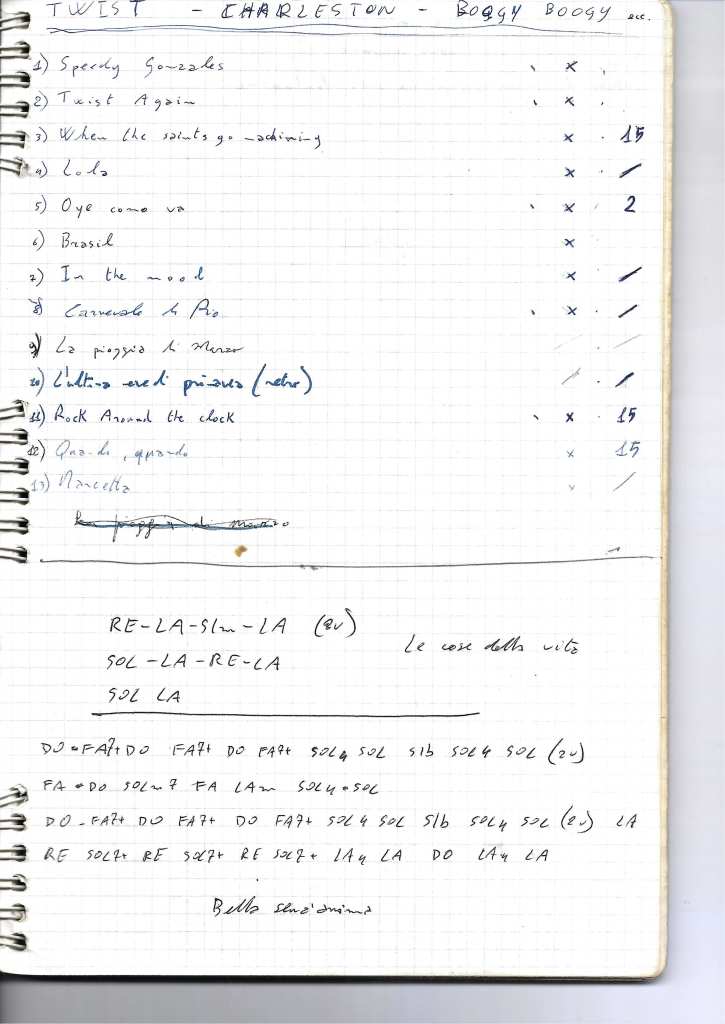 TWIST - CHARLESTON - BOGGY BOOGY ecc.
1) Speedy Gonzales x
2) Twist Again x
3) When the saints go machining x 15
4) Lola x /
5) Oye como va x 2
6) Brasil x
7) In the mood x /
8) Carnevale di Rio x /
9) La pioggia di Marzo / /
10) L'ultima neve di primavera (retro) / /
11) Rock Around the clock x 15
12) Quando, quando x 15
13) Marcetta x /
La pioggia di marzo
RE-LA-SIm-LA (2v)
SOL-LA-RE-LA
Le cose della vita
SOL LA
DO-FA7+ DO FA7+ DO FA7+ SOL4 SOL SIb SOL4 SOL (2v)
FA-DO SOLm7 FA LAm SOL4-SOL
DO-FA7+ DO FA7+ DO FA7+ SOL4 SOL SIb SOL4 SOL (2v) LA
RE SOL7+ RE SOL7+ RE SOL7+ LA4 LA DO LA4 LA
Bella senz'anima